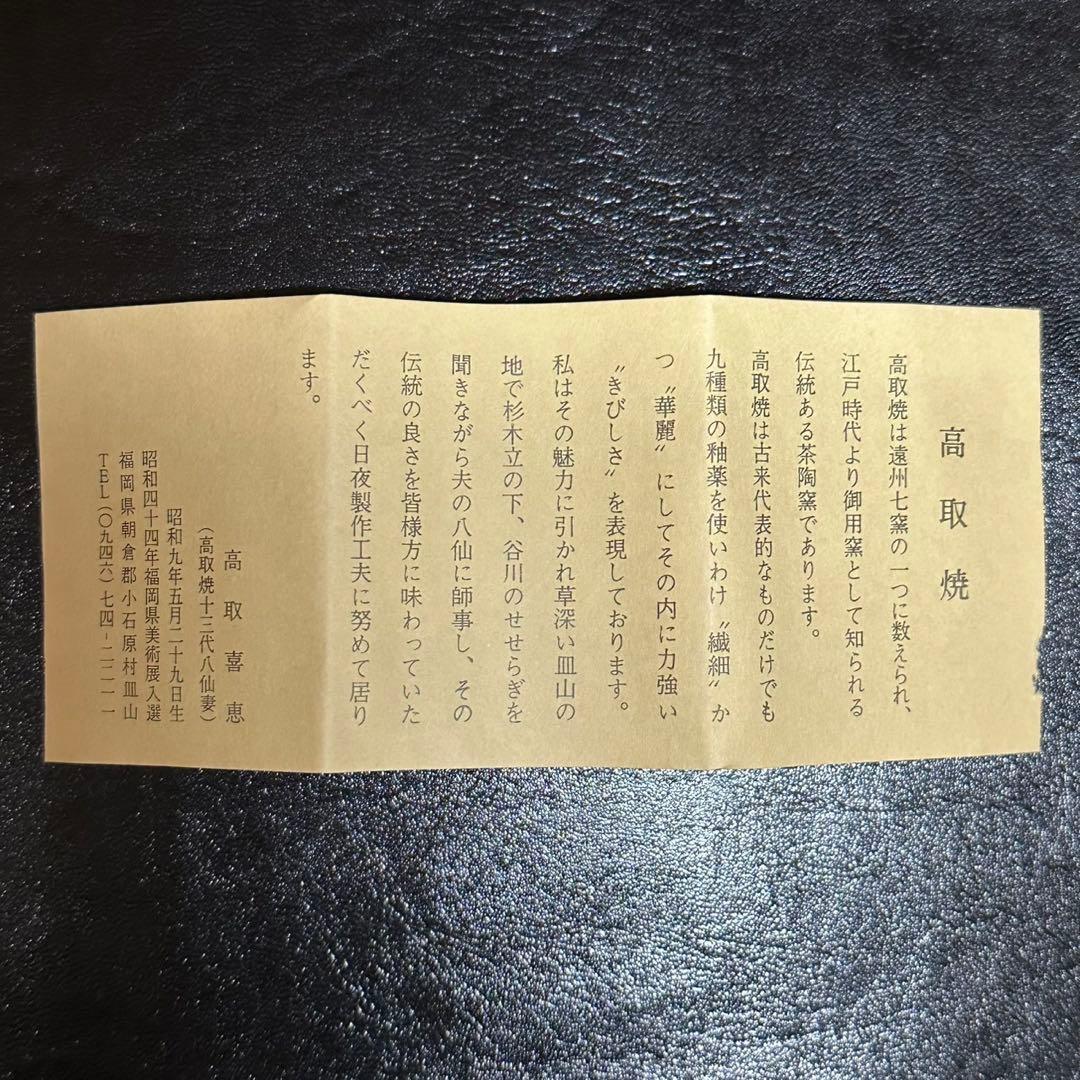 高取焼
高取焼は遠州七窯の一つに数えられ、
江戸時代より御用窯として知られる
伝統ある茶陶窯であります。
高取焼は古来代表的なものだけでも
九種類の釉薬を使いわけ〝繊細〟か
つ〝華麗〟にしてその内に力強い
〝きびしさ〟を表現しております。
私はその魅力に引かれ草深い皿山の
地で杉木立の下、谷川のせせらぎを
聞きながら夫の八仙に師事し、その
伝統の良さを皆様方に味わっていた
だくべく日夜製作工夫に努めて居り
ます。
高取喜恵
(高取焼十三代八仙妻)
昭和九年五月二十九日生
昭和四十四年福岡県美術展入選
福岡県朝倉郡小石原村皿山
TEL(〇九四六)七四-二二一一